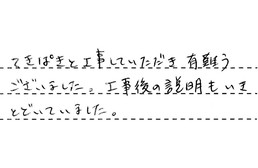 てきぱきと工事していただき 有難う
ございました。工事後の説明もいき
とどいていました。